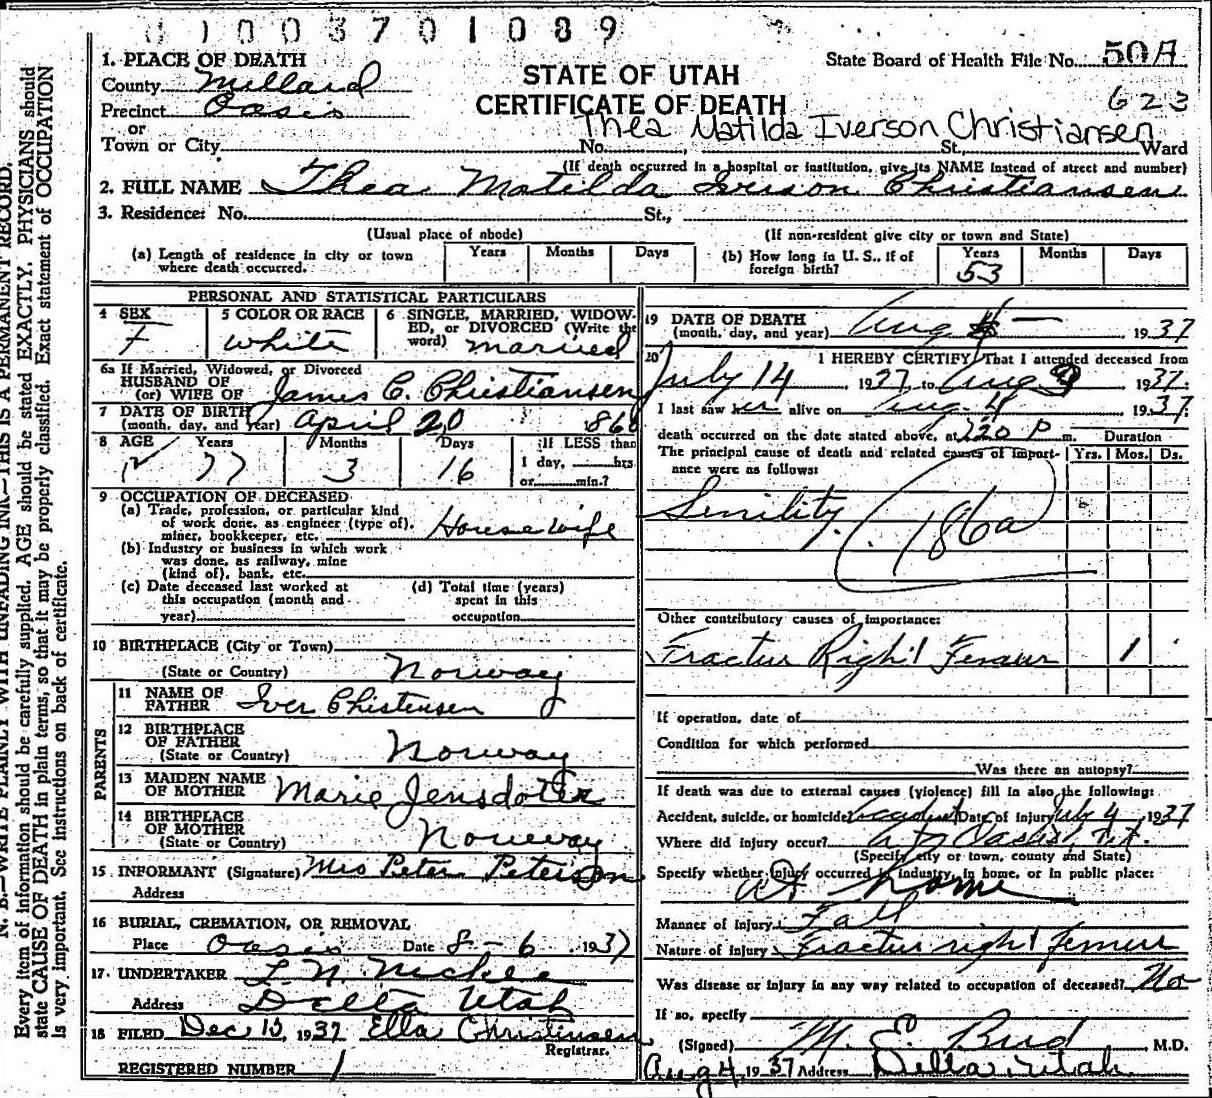 01003701089
1. PLACE OF DEATH
County Millard
Precinct Oasis
or
Town or City
STATE OF UTAH
CERTIFICATE OF DEATH
State Board of Health File No. 50A
623
Thea Matilda Iverson Christiansen
No. , St., Ward
(If death occurred in a hospital or institution, give its NAME instead of street and number)
2. FULL NAME Thea Matilda Iverson Christiansen
3. Residence: No. St.,
(Usual place of abode) (If non-resident give city or town and State)
(a) Length of residence in city or town where death occurred. Years Months Days
(b) How long in U. S., if of foreign birth? Years 53 Months Days
PERSONAL AND STATISTICAL PARTICULARS
4 SEX F
5 COLOR OR RACE white
6 SINGLE, MARRIED, WIDOWED, or DIVORCED (Write the word) married
6a If Married, Widowed, or Divorced
HUSBAND OF
(or) WIFE OF James C. Christiansen
7 DATE OF BIRTH
(month, day, and year) April 20 860
8 AGE Years 77 Months 3 Days 16 If LESS than
1 day, hrs
or min.?
9 OCCUPATION OF DECEASED
(a) Trade, profession, or particular kind
of work done, as engineer (type of),
miner, bookkeeper, etc. Housewife
(b) Industry or business in which work
was done, as railway, mine
(kind of), bank, etc.
(c) Date deceased last worked at
this occupation (month and
year)
(d) Total time (years)
spent in this
occupation
10 BIRTHPLACE (City or Town)
(State or Country) Norway
PARENTS
11 NAME OF
FATHER Iver Chistensen
12 BIRTHPLACE
OF FATHER
(State or Country) Norway
13 MAIDEN NAME
OF MOTHER Marie Jensdotter
14 BIRTHPLACE
OF MOTHER
(State or Country) Norway
15 INFORMANT (Signature) Mrs Peter Peterson
Address
16 BURIAL, CREMATION, OR REMOVAL
Place Oasis Date 8-6 1937
17. UNDERTAKER
Address Delta Utah
18 FILED Dec 15, 1937 Ella Christiansen
Registrar.
REGISTERED NUMBER 1
19 DATE OF DEATH
(month, day, and year) Aug 1937
20 I HEREBY CERTIFY, That I attended deceased from
July 14 1937 to Aug 1937.
I last saw her alive on Aug. 4 1937.
death occurred on the date stated above, at 720 P m.
Duration
The principal cause of death and related causes of importance were as follows: Yrs. Mos. Ds.
Senility. (186a)
Other contributory causes of importance:
Fractur Right Femur 1
If operation, date of
Condition for which performed
Was there an autopsy?
If death was due to external causes (violence) fill in also the following:
Accident, suicide, or homicide Date of injury July 4, 1937
Where did injury occur?
(Specify city or town, county and State)
Specify whether injury occurred in industry, in home, or in public place:
At home
Manner of injury Fall
Nature of injury Fractur right femur
Was disease or injury in any way related to occupation of deceased? No
If so, specify
(Signed) M. E. Bird M.D.
Aug 4, 1937 Address Delta, Utah.
N. B.—WRITE PLAINLY WITH UNFADING INK—THIS IS A PERMANENT RECORD.
Every item of information should be carefully supplied. AGE should be stated EXACTLY. PHYSICIANS should
state CAUSE OF DEATH in plain terms, so that it may be properly classified. Exact statement of OCCUPATION
is very important. See instructions on back of certificate.